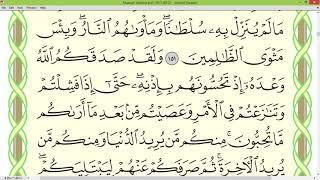 مَا لَمْ يُنَزِّلْ بِهِۦ سُلْطَٰنًا ۖ وَمَأْوَىٰهُمُ ٱلنَّارُ ۚ وَبِئْسَ
مَثْوَى ٱلظَّٰلِمِينَ ١٥١ وَلَقَدْ صَدَقَكُمُ ٱللَّهُ
وَعْدَهُۥٓ إِذْ تَحُسُّونَهُم بِإِذْنِهِۦ ۖ حَتَّىٰٓ إِذَا فَشِلْتُمْ
وَتَنَٰزَعْتُمْ فِى ٱلْأَمْرِ وَعَصَيْتُم مِّنۢ بَعْدِ مَآ أَرَىٰكُم
مَّا تُحِبُّونَ ۚ مِنكُم مَّن يُرِيدُ ٱلدُّنْيَا وَمِنكُم مَّن
يُرِيدُ ٱلْءَاخِرَةَ ۚ ثُمَّ صَرَفَكُمْ عَنْهُمْ لِيَبْتَلِيَكُمْ ۖ